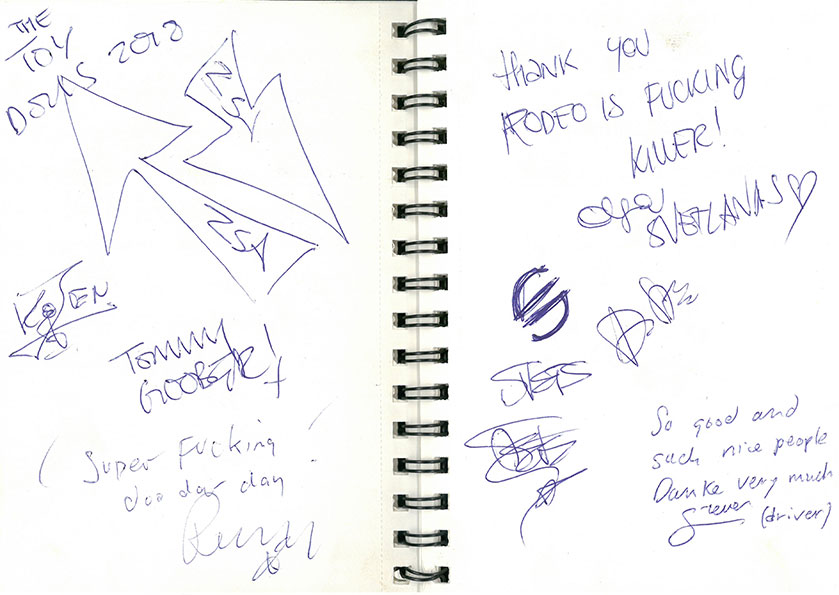 THE
TOY
DOLLS 2018
NSA
NSA
TOMMY
GOOBER!
(Super Fucking
doo dar day!
THANK YOU
RODEO IS FUCKING
KILLER!
Olga
SVETLANAS
SVETS
So good and
such nice people
Danke very much
(driver)